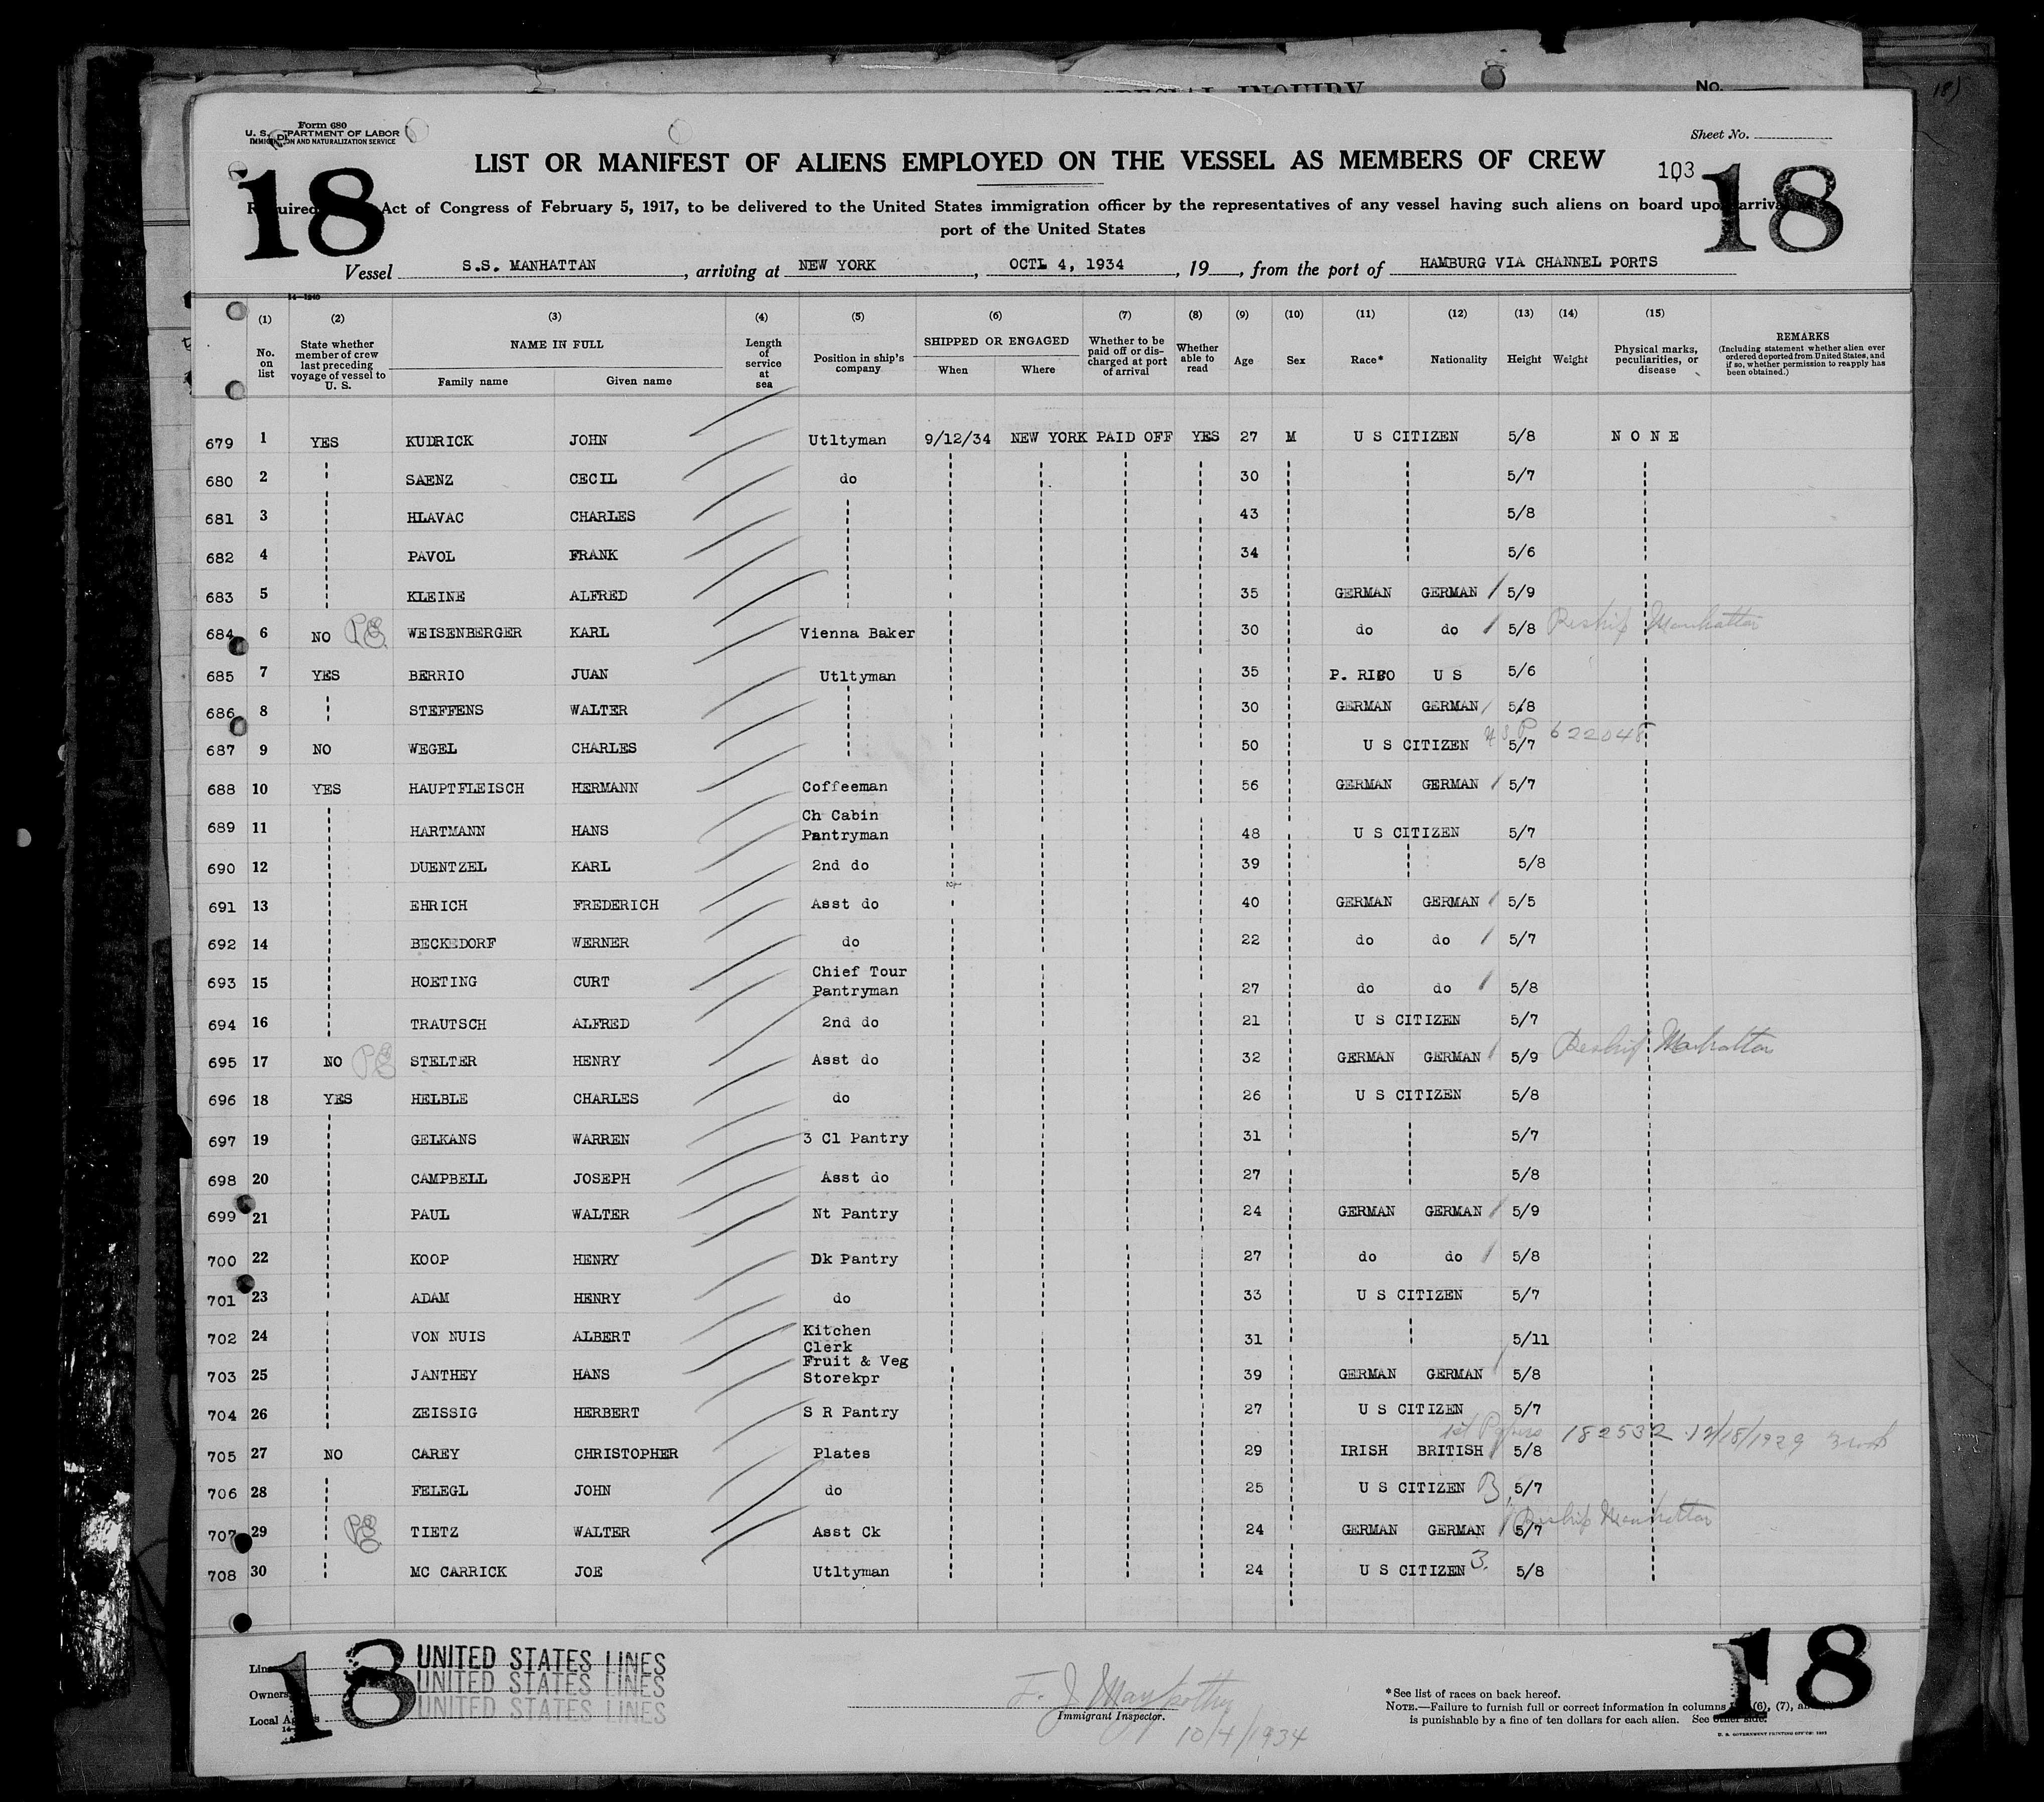 SPECIAL INQUIRY
No.
18)
Form 680
U. S. DEPARTMENT OF LABOR
IMMIGRATION AND NATURALIZATION SERVICE
Sheet No.
LIST OR MANIFEST OF ALIENS EMPLOYED ON THE VESSEL AS MEMBERS OF CREW
103
18 18
Required Act of Congress of February 5, 1917, to be delivered to the United States immigration officer by the representatives of any vessel having such aliens on board upon arriva
port of the United States
Vessel S.S. MANHATTAN, arriving at NEW YORK, OCTL 4, 1934, 19, from the port of HAMBURG VIA CHANNEL PORTS
14—1240
(1) (2) (3) (4) (5) (6) (7) (8) (9) (10) (11) (12) (13) (14) (15)
No. on list
State whether member of crew last preceding voyage of vessel to U. S.
NAME IN FULL
Family name Given name
Length of service at sea
Position in ship's company
SHIPPED OR ENGAGED
When Where
Whether to be paid off or discharged at port of arrival
Whether able to read
Age Sex Race* Nationality Height Weight
Physical marks, peculiarities, or disease
REMARKS
(Including statement whether alien ever ordered deported from United States, and if so, whether permission to reapply has been obtained.)
679 1 YES KUDRICK JOHN Utltyman 9/12/34 NEW YORK PAID OFF YES 27 M U S CITIZEN 5/8 N O N E
680 2 SAENZ CECIL do 30 5/7
681 3 HLAVAC CHARLES 43 5/8
682 4 PAVOL FRANK 34 5/6
683 5 KLEINE ALFRED 35 GERMAN GERMAN 5/9
684 6 NO WEISENBERGER KARL Vienna Baker 30 do do 5/8 Reship Manhattan
685 7 YES BERRIO JUAN Utltyman 35 P. RICO U S 5/6
686 8 STEFFENS WALTER 30 GERMAN GERMAN 5/8
687 9 NO WEGEL CHARLES 50 U S CITIZEN 5/7 USP 622048
688 10 YES HAUPTFLEISCH HERMANN Coffeeman 56 GERMAN GERMAN 5/7
689 11 HARTMANN HANS Ch Cabin Pantryman 48 U S CITIZEN 5/7
690 12 DUENTZEL KARL 2nd do 39 5/8
691 13 EHRICH FREDERICH Asst do 40 GERMAN GERMAN 5/5
692 14 BECKEDORF WERNER do 22 do do 5/7
693 15 HOETING CURT Chief Tour Pantryman 27 do do 5/8
694 16 TRAUTSCH ALFRED 2nd do 21 U S CITIZEN 5/7
695 17 NO STELTER HENRY Asst do 32 GERMAN GERMAN 5/9 Reship Manhattan
696 18 YES HELBLE CHARLES do 26 U S CITIZEN 5/8
697 19 GELKANS WARREN 3 Cl Pantry 31 5/7
698 20 CAMPBELL JOSEPH Asst do 27 5/8
699 21 PAUL WALTER Nt Pantry 24 GERMAN GERMAN 5/9
700 22 KOOP HENRY Dk Pantry 27 do do 5/8
701 23 ADAM HENRY do 33 U S CITIZEN 5/7
702 24 VON NUIS ALBERT Kitchen Clerk 31 5/11
703 25 JANTHEY HANS Fruit & Veg Storekpr 39 GERMAN GERMAN 5/8
704 26 ZEISSIG HERBERT S R Pantry 27 U S CITIZEN 5/7
1st Papers 182532 12/18/1929
705 27 NO CAREY CHRISTOPHER Plates 29 IRISH BRITISH 5/8
706 28 FELEGL JOHN do 25 U S CITIZEN B 5/7
707 29 TIETZ WALTER Asst Ck 24 GERMAN GERMAN 5/7 Reship Manhattan
708 30 MC CARRICK JOE Utltyman 24 U S CITIZEN 5/8
18 18
Line UNITED STATES LINES
Owners UNITED STATES LINES
Local Agents UNITED STATES LINES
Immigrant Inspector.
10/4/1934
*See list of races on back hereof.
NOTE.—Failure to furnish full or correct information in columns (6), (7), an
is punishable by a fine of ten dollars for each alien. See other side.
U. S. GOVERNMENT PRINTING OFFICE